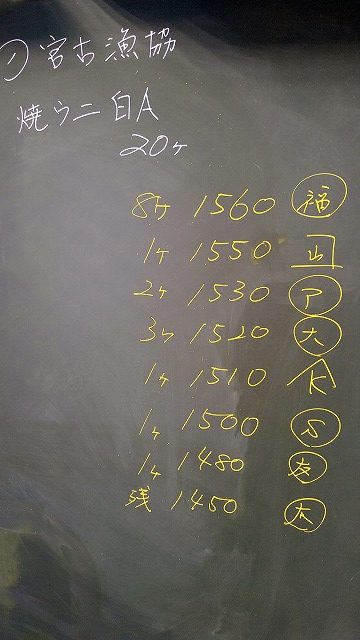 1) 宮古漁協
焼ウニ 白A
20ヶ
8ヶ 1560 福
1ヶ 1550 山
2ヶ 1530 ア
3ヶ 1520 大
1ヶ 1510 K
1ヶ 1500 S
1ヶ 1480 友
残 1450 大